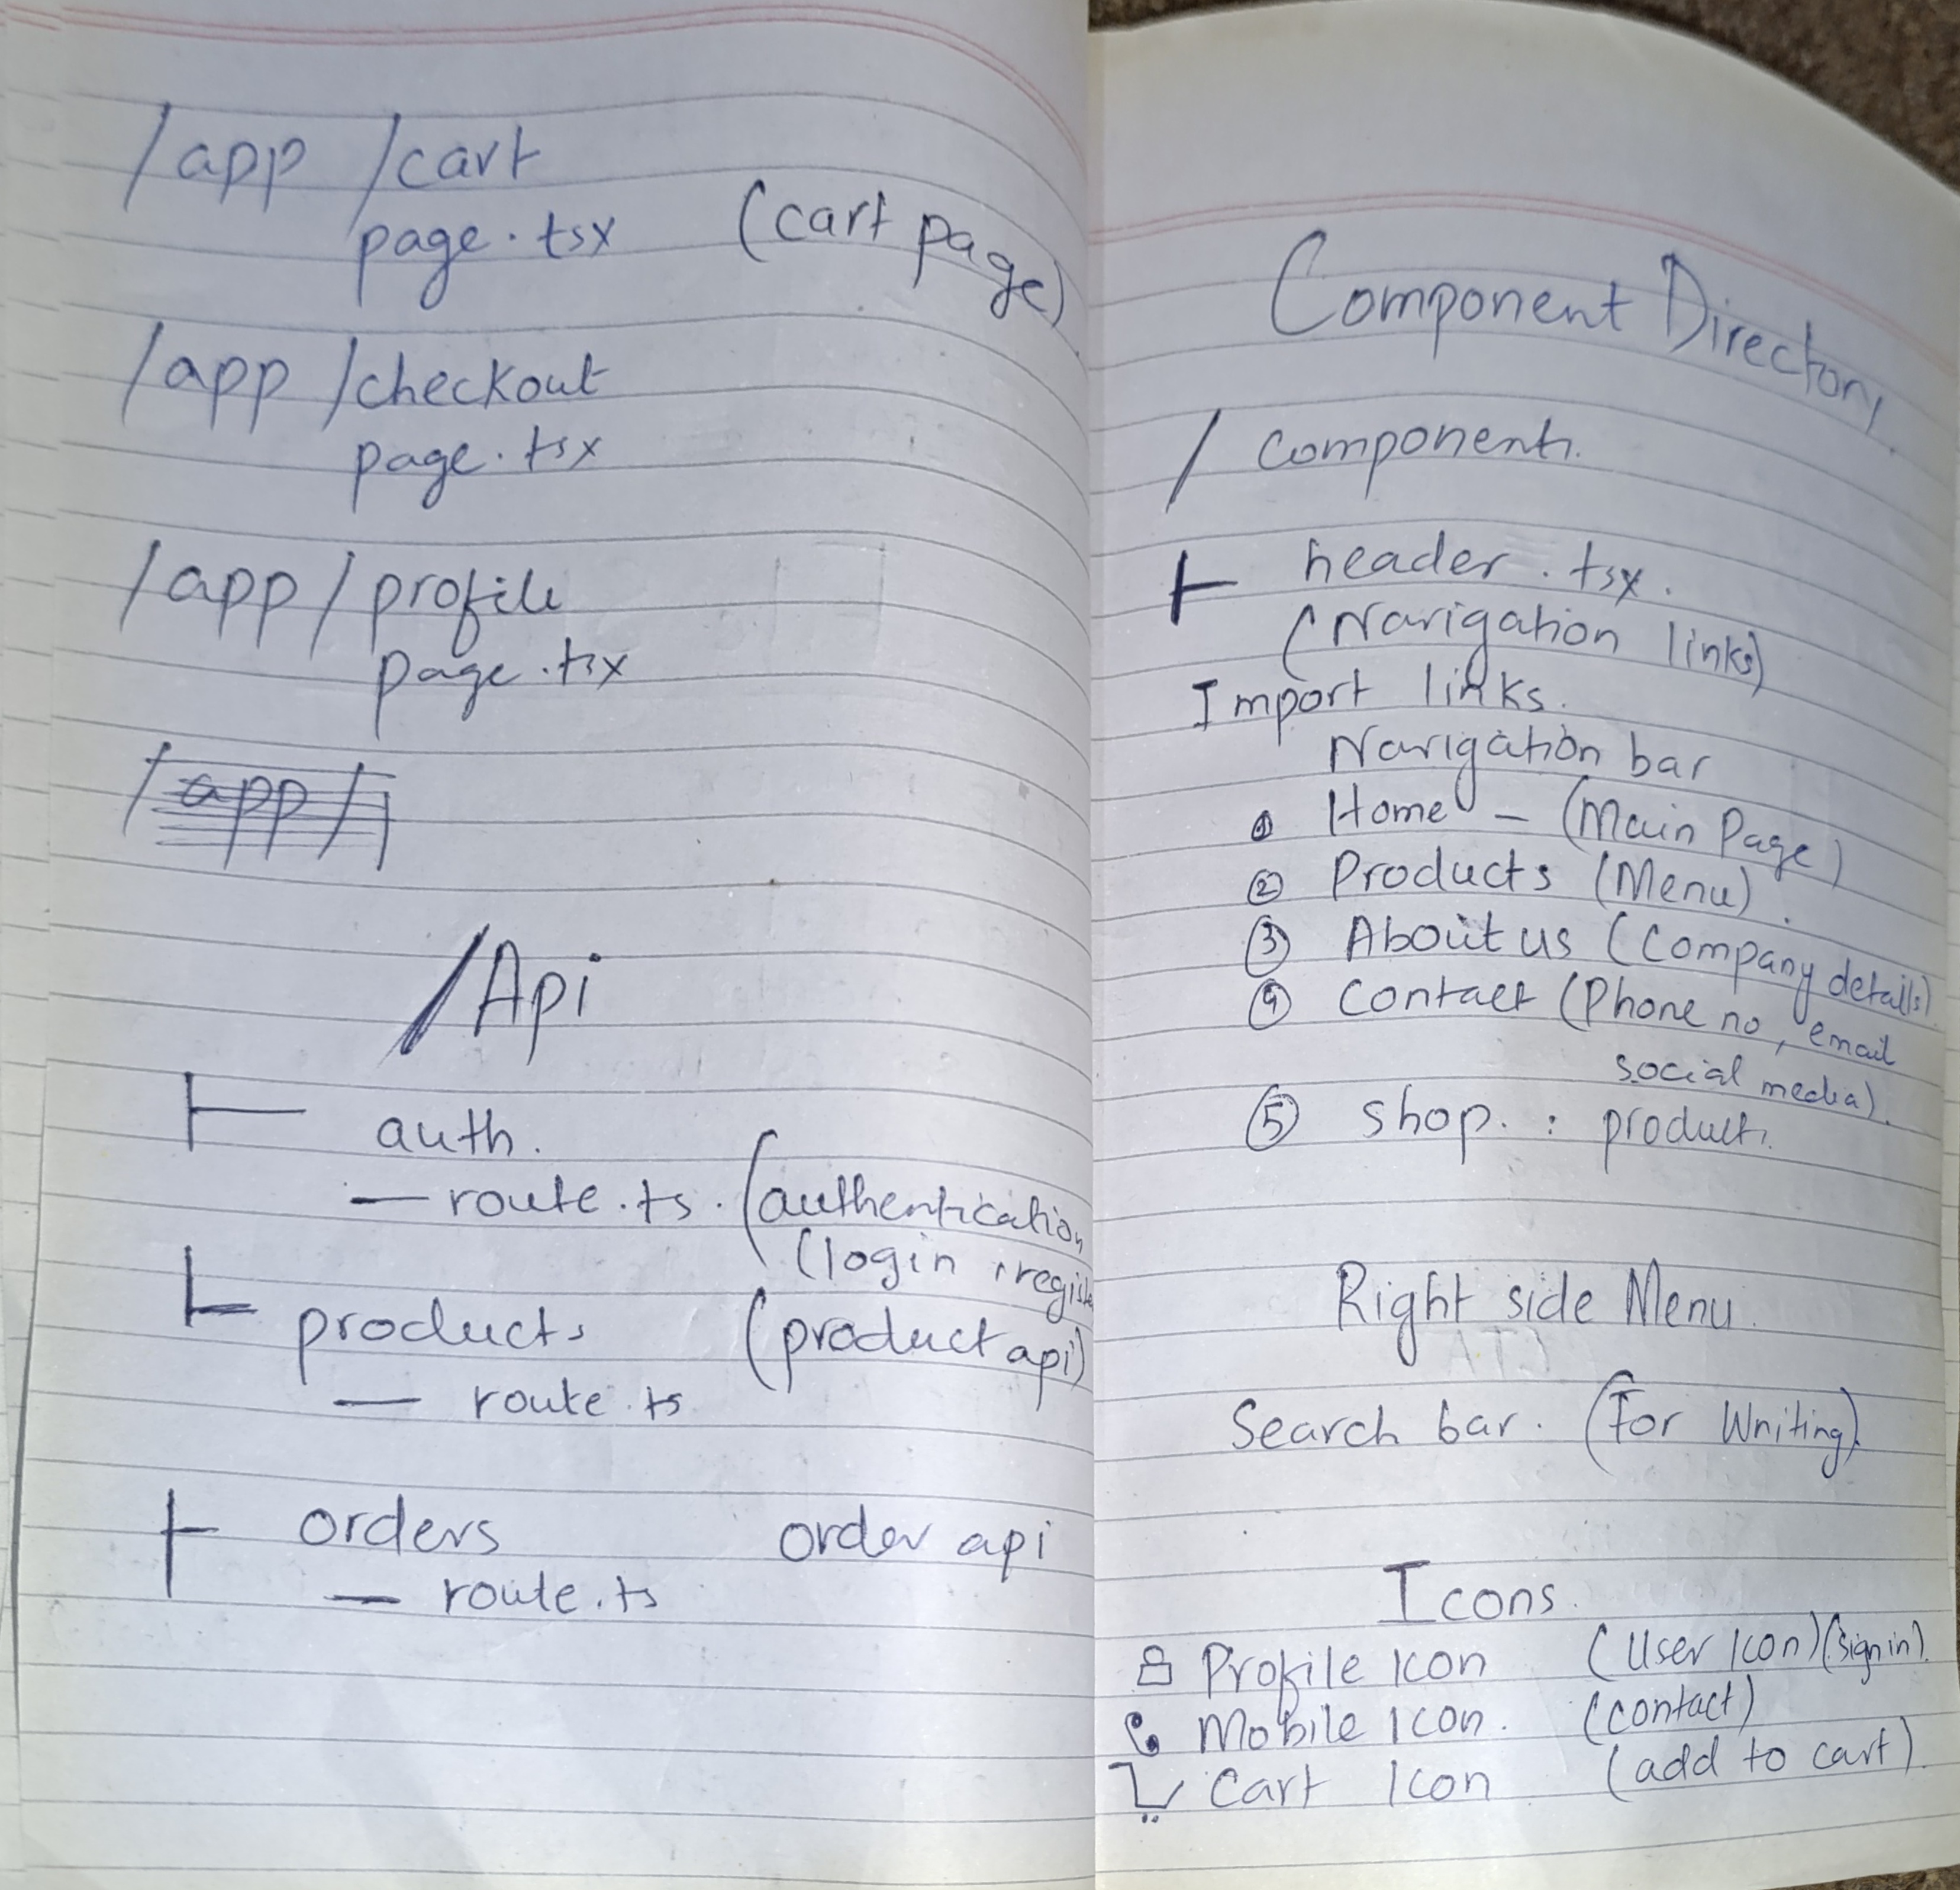 /app /cart
page.tsx (cart page)
/app /checkout
page.tsx
/app/profile
page.tsx
/app/
/Api
auth.
— route.ts. (authentication
(login, regist
products (product api)
— route.ts
orders order api
— route.ts
Component Directory
/ components.
header.tsx.
(Navigation links)
Import links.
Navigation bar
① Home — (Main Page)
② Products (Menu).
③ About us (Company details)
④ Contact (Phone no, email
social media).
⑤ shop. : products.
Right side Menu.
Search bar. (For Writing)
Icons.
Profile Icon (User Icon)(sign in).
Mobile Icon. (contact)
Cart Icon (add to cart).